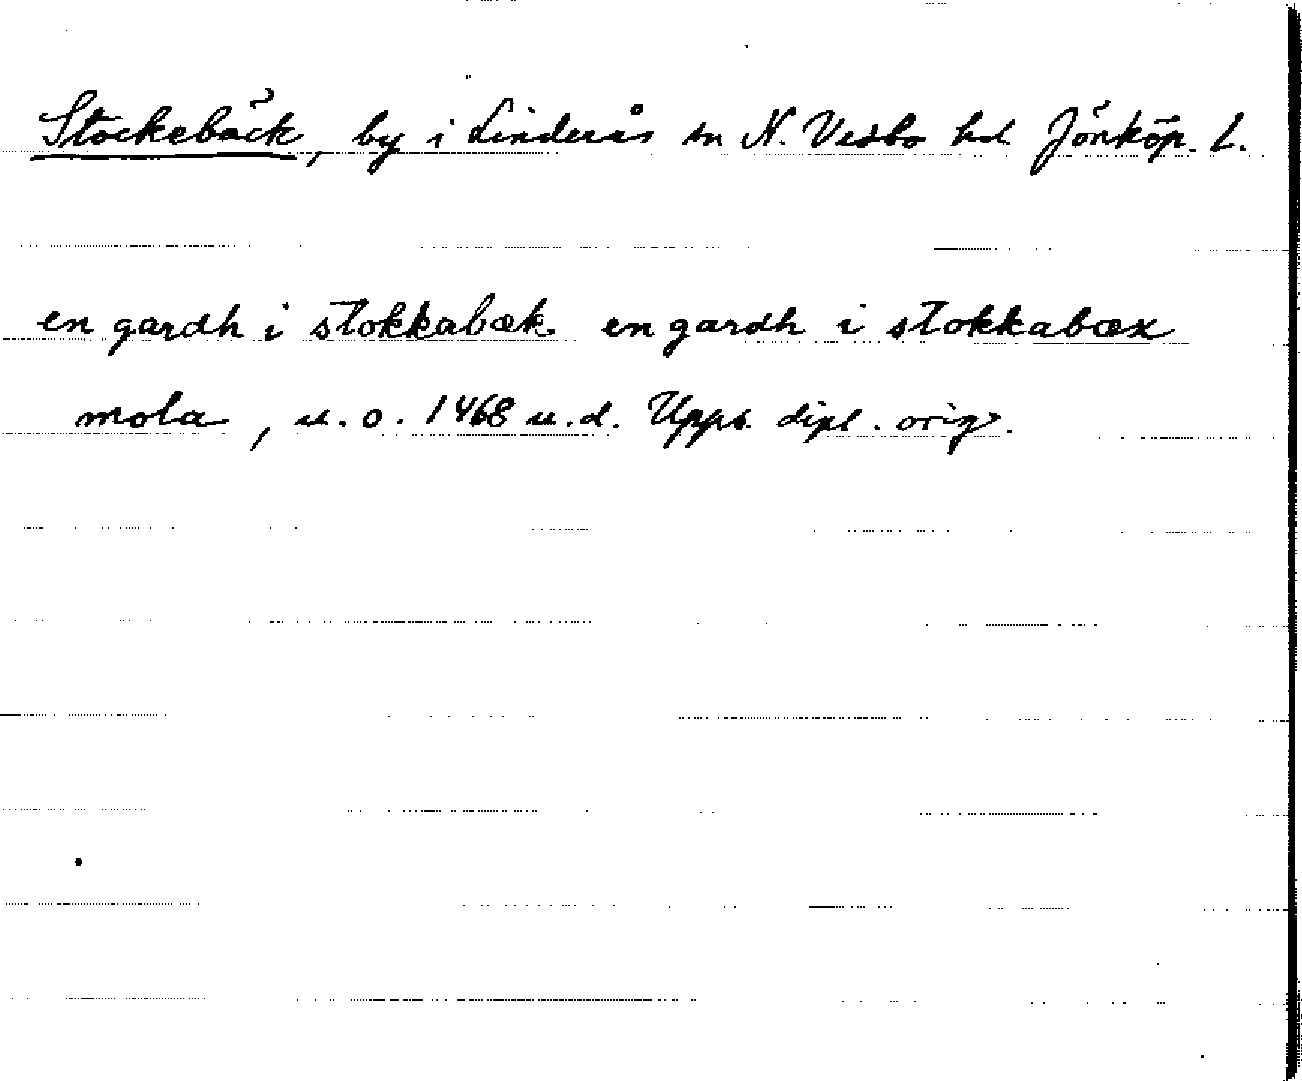 Stockebäck, by i Linderås sn N. Vedbo hd Jönköp. L.
en gardh i stokkabæk en gardh i stokkabæx
mola, u. o. 1468 u. d. Upps. dipl. orig.